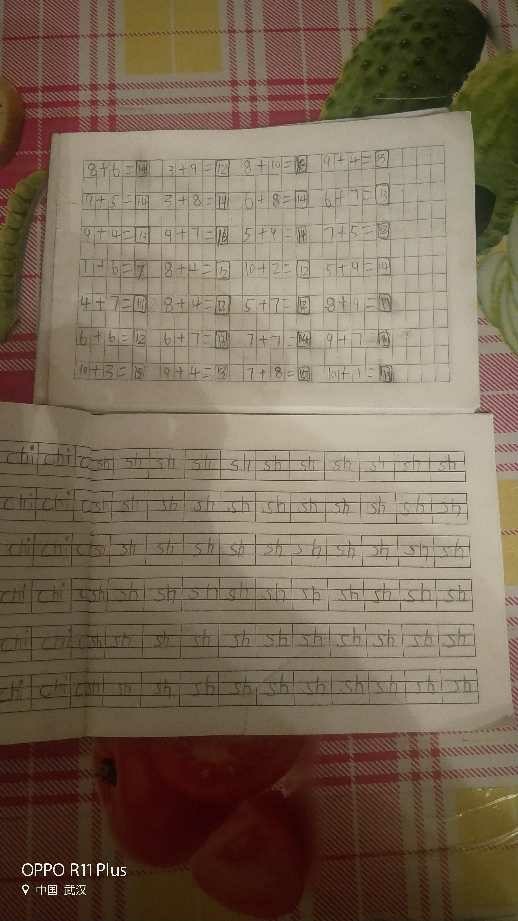 8+6=14 3+9=12 8+10=18 9+4=13
9+5=14 3+8=11 6+8=14 6+7=13
9+4=13 9+7=16 5+9=14 7+5=12
8+4=12 10+2=12 5+9=14
4+7=11 8+4=12 5+7=12 8+9=17
6+6=12 6+7=13 7+7=14 9+7=16
10+3=13 9+4=13 7+8=15
chi chi c sh sh sh sh sh sh sh sh sh sh sh
chi chi c sh sh sh sh sh sh sh sh sh sh sh
chi chi c sh sh sh sh sh sh sh sh sh sh sh
chi chi c sh sh sh sh sh sh sh sh sh sh sh
chi chi c sh sh sh sh sh sh sh sh sh sh sh
chi chi c sh sh sh sh sh sh sh sh sh sh sh
OPPO R11 Plus
中国 武汉